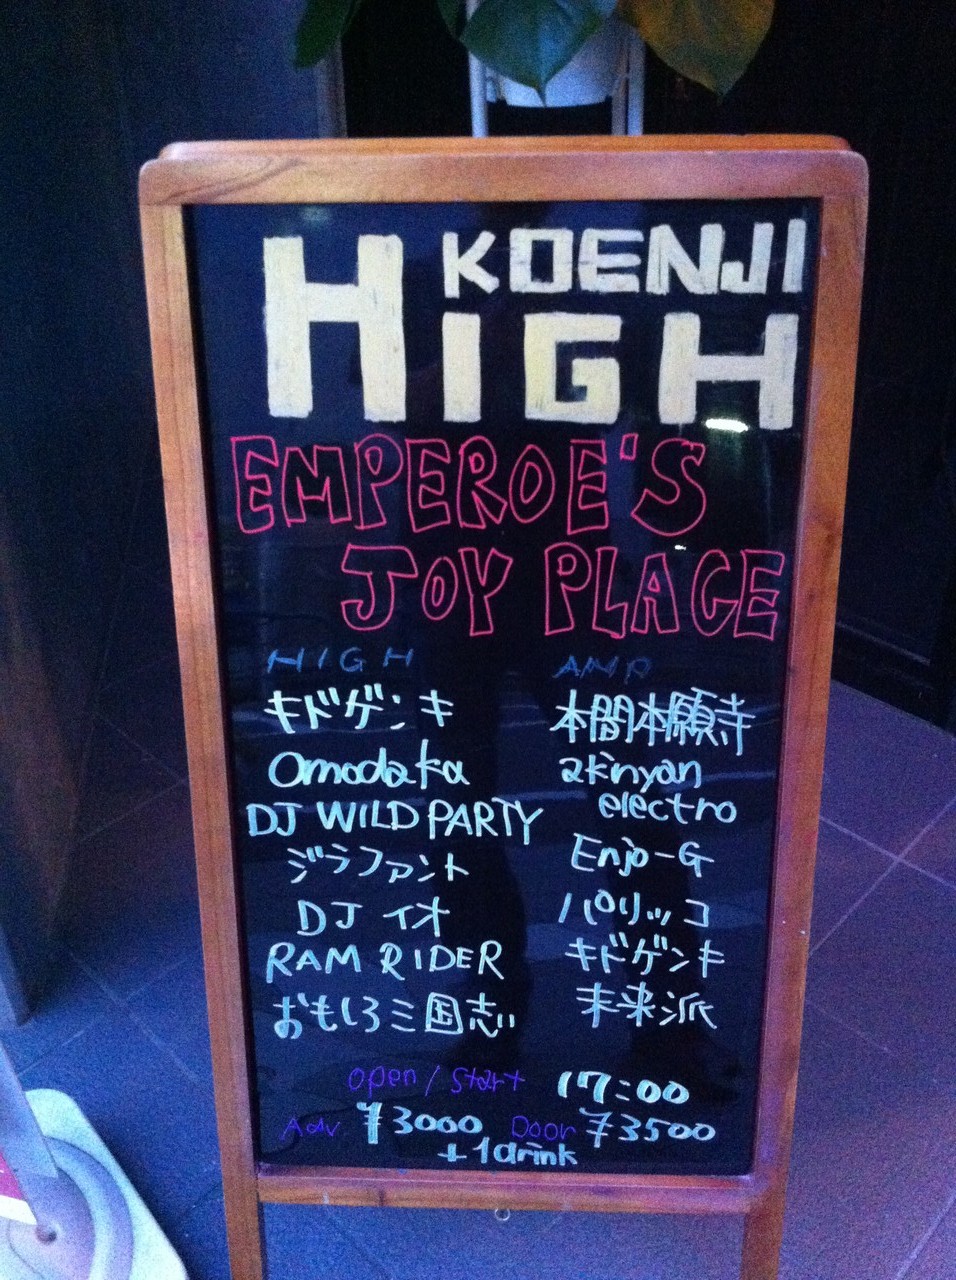 KOENJI
HIGH
EMPEROE'S
JOY PLACE
HIGH
キドゲンキ
Omodaka
DJ WILD PARTY
ジラファント
DJ イオ
RAM RIDER
おもしろ三国志
AMP
本間本願寺
akinyan
electro
Enjo-G
パリッコ
キドゲンキ
未来派
open / start 17:00
Adv ¥3000 Door ¥3500
+1drink